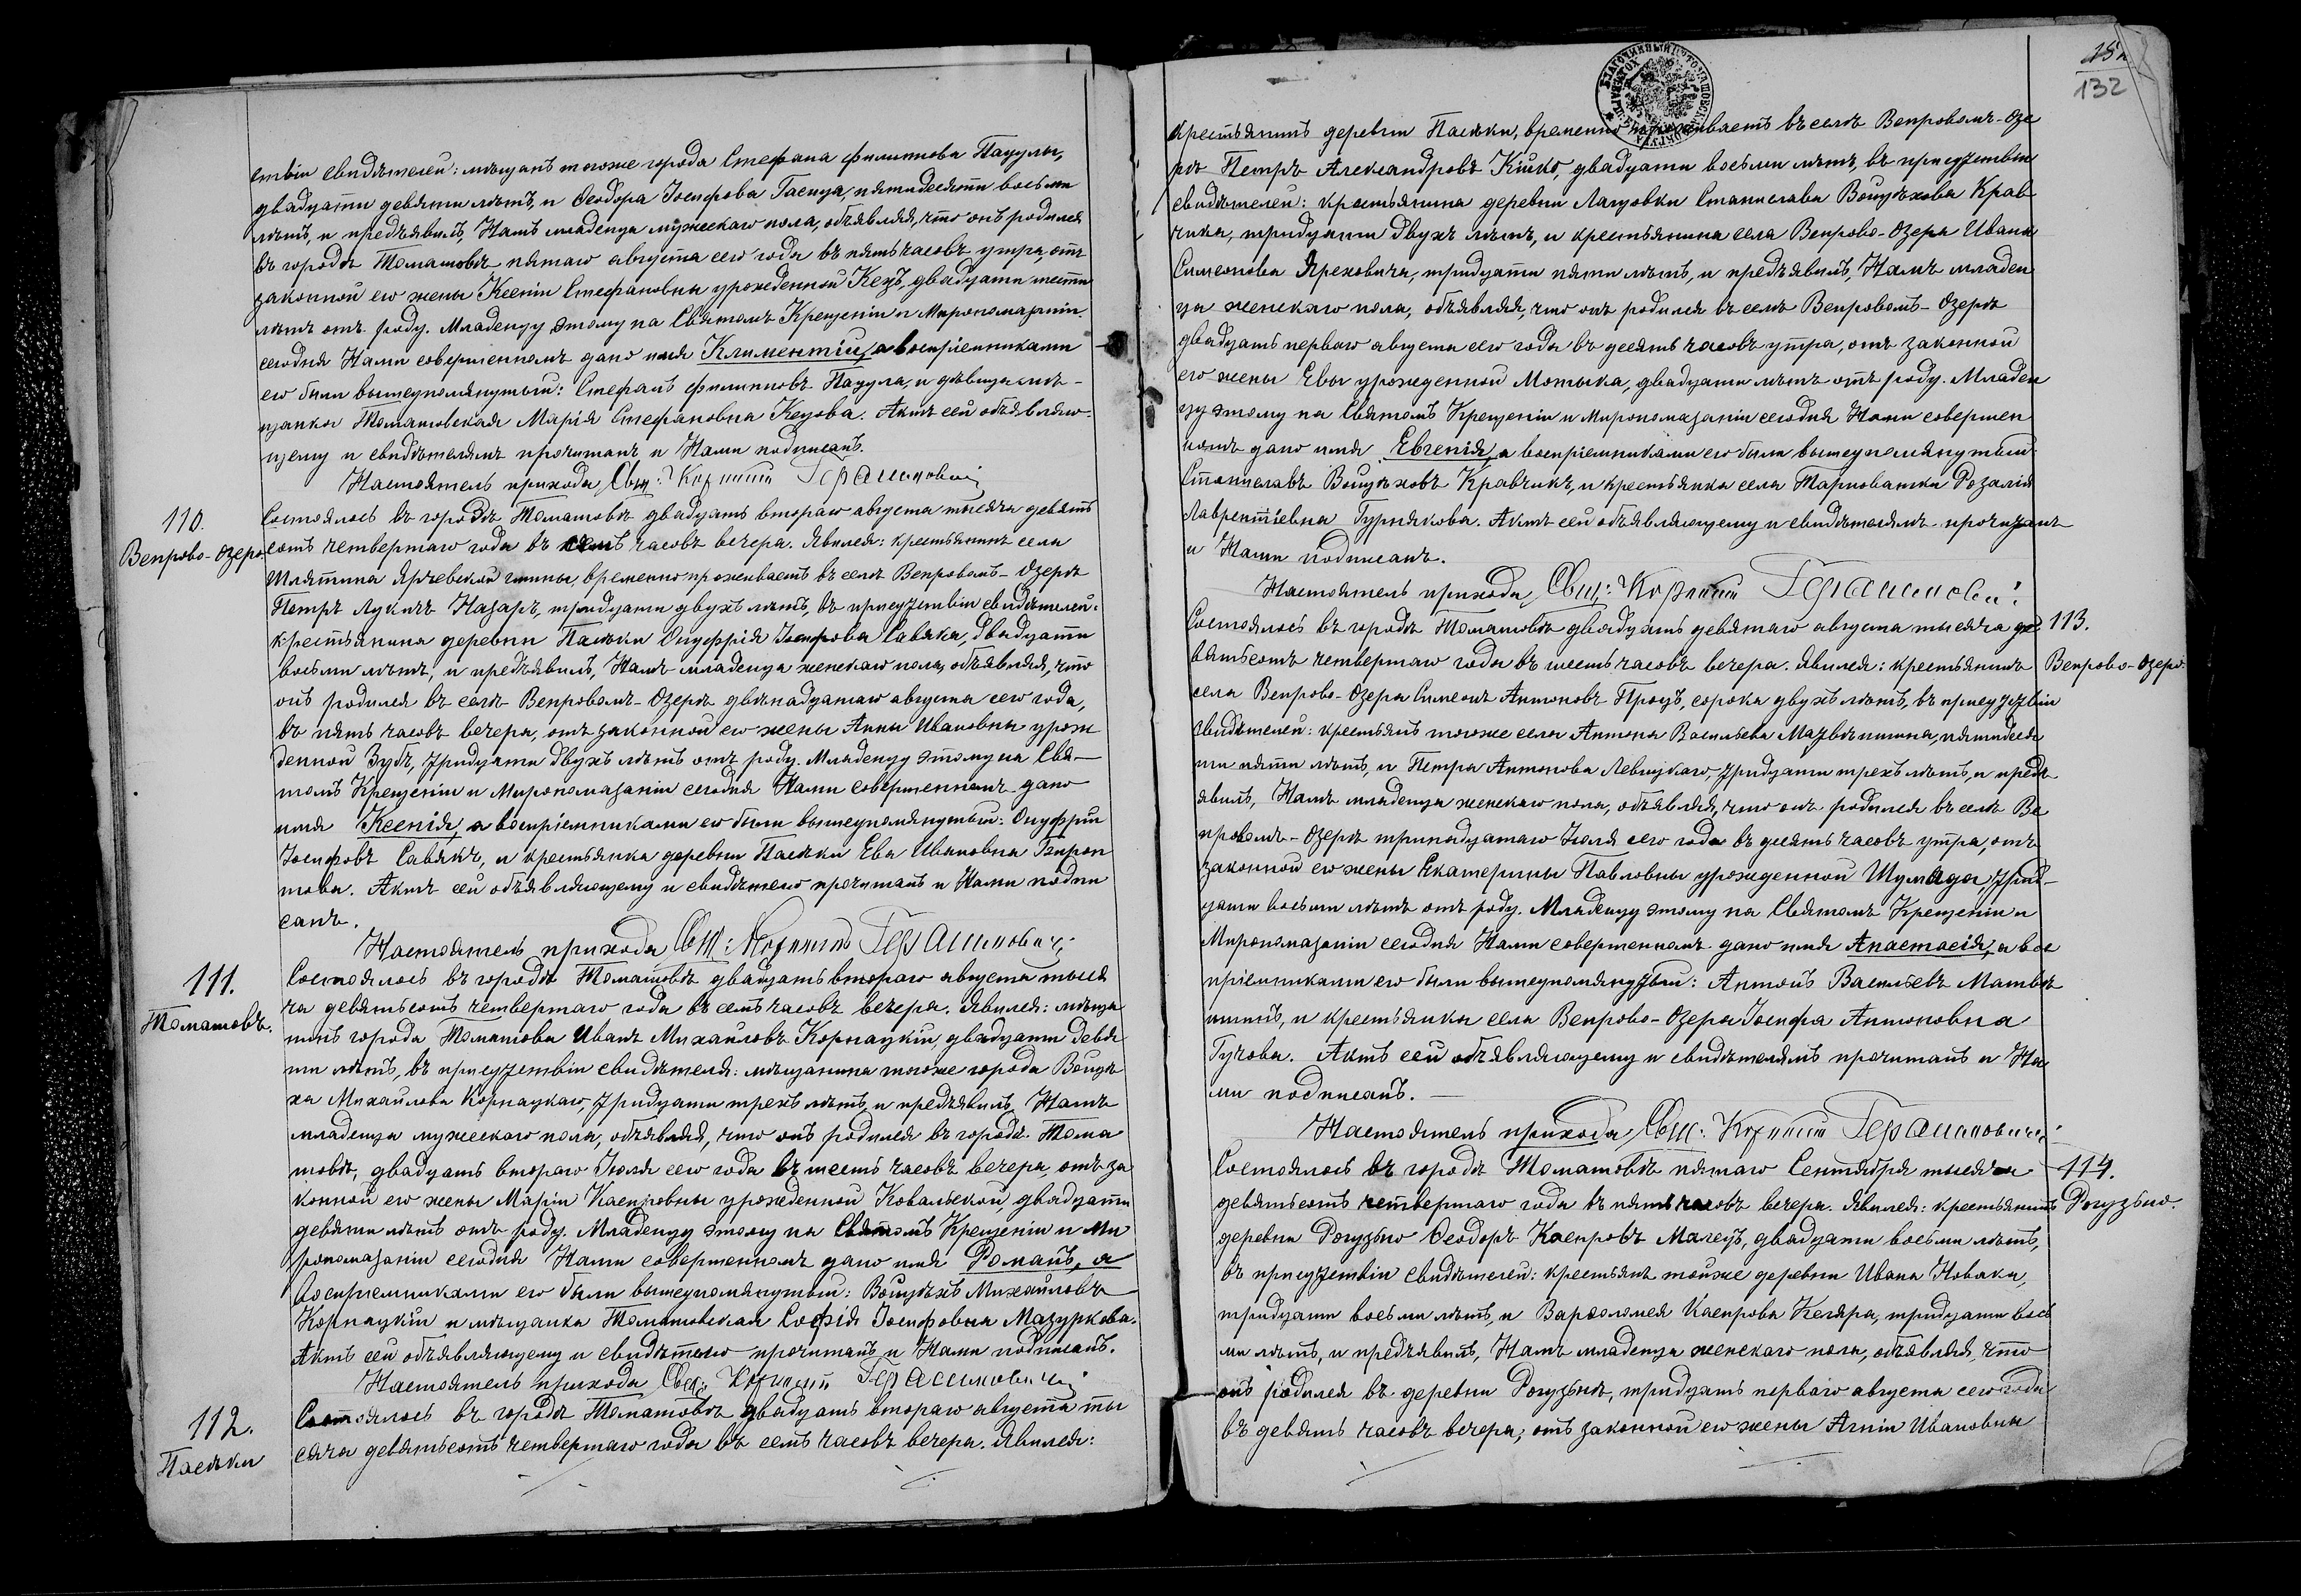 ствіи свидѣтелей: мѣщанъ тогоже города Стефана Филиппова Пацулы,
двадцати девяти лѣтъ, и Ѳеодора Іосифова Гасица, пятидесяти восьми
лѣтъ, и предъявилъ, Намъ младенца мужескаго пола, объявляя, что онъ родился
въ городѣ Томашовѣ пятаго августа сего года въ пять часовъ утра, отъ
законной его жены Ксеніи Стефановны урожденной Кецъ, двадцати шести
лѣтъ отъ роду. Младенцу этому на Святомъ Крещеніи и Миропомазаніи
сегодня Нами совершенномъ дано имя Климентій, а воспріемниками
его были вышеупомянутый: Стефанъ Филипповъ Пацула, и дѣвица мѣ-
щанка Томашовская Марія Стефановна Кецова. Актъ сей объявляю-
щему и свидѣтелямъ прочитанъ и Нами подписанъ.
Настоятель прихода Свящ: Корнилій Герасимовичъ
110.
Вепрово-Озеро
Состоялось въ городѣ Томашовѣ двадцать втораго августа тысяча девять
сотъ четвертаго года въ семь часовъ вечера. Явился: крестьянинъ села
Шлятина Ярчевской гмины, временно проживаетъ въ селѣ Вепровомъ-Озерѣ
Петръ Лукичъ Назаръ, тридцати двухъ лѣтъ, въ присутствіи свидѣтелей:
крестьянина деревни Пасѣки Онуфрія Іосифова Савяка, двадцати
восьми лѣтъ, и предъявилъ, Намъ младенца женскаго пола, объявляя, что
онъ родился въ селѣ Вепровомъ-Озерѣ двѣнадцатаго августа сего года,
въ пять часовъ вечера, отъ законной его жены Анны Ивановны урож
денной Зубъ, тридцати двухъ лѣтъ отъ роду. Младенцу этому на Свя-
томъ Крещеніи и Миропомазаніи сегодня Нами совершенномъ дано
имя Ксенія, а воспріемниками его были вышеупомянутый: Онуфрій
Іосифовъ Савякъ, и крестьянка деревни Пасѣки Ева Ивановна
това. Актъ сей объявляющему и свидѣтелю прочитанъ и Нами подпи
санъ.
Настоятель прихода Свящ: Корнилій Герасимовичъ
111.
Томашовъ.
Состоялось въ городѣ Томашовѣ двадцать втораго августа тыся
ча девятьсотъ четвертаго года въ семь часовъ вечера. Явился: мѣща
нинъ города Томашова Иванъ Михайловъ Корнацкій, двадцати девя
ти лѣтъ, въ присутствіи свидѣтеля: мѣщанина тогоже города Войцѣ
ха Михайлова Корнацкаго, тридцати трехъ лѣтъ, и предъявилъ, Намъ
младенца мужескаго пола, объявляя, что онъ родился въ городѣ Тома
шовѣ, двадцать втораго Іюля сего года въ шесть часовъ вечера, отъ за
конной его жены Маріи Каспровны урожденной Ковальской, двадцати
девяти лѣтъ отъ роду. Младенцу этому на Святомъ Крещеніи и Ми
ропомазаніи сегодня Нами совершенномъ дано имя Романъ, а
воспріемниками его были вышеупомянутый: Войцѣхъ Михайловъ
Корнацкій и мѣщанка Томашовская Софія Іосифовна Мазуркова.
Актъ сей объявляющему и свидѣтелю прочитанъ и Нами подписанъ.
Настоятель прихода Свящ: Корнилій Герасимовичъ
112.
Пасѣки
Состоялось въ городѣ Томашовѣ двадцать втораго августа ты
сяча девятьсотъ четвертаго года въ семь часовъ вечера. Явился:
132
крестьянинъ деревни Пасѣки, временно проживаетъ въ селѣ Вепровомъ-Озе
рѣ Петръ Александровъ Кицко, двадцати восьми лѣтъ, въ присутствіи
свидѣтелей: крестьянина деревни Лащовки Станислава Войцѣхова Крав
чика, тридцати двухъ лѣтъ, и крестьянина села Вепрово-Озера Ивана
Симеонова Яреховича, тридцати пяти лѣтъ, и предъявилъ, Намъ младен
ца женскаго пола, объявляя, что онъ родился въ селѣ Вепровомъ-Озерѣ
двадцать перваго августа сего года въ десять часовъ утра, отъ законной
его жены Евы урожденной Мотыка, двадцати лѣтъ отъ роду. Младен
цу этому на Святомъ Крещеніи и Миропомазаніи сегодня Нами совершен
номъ дано имя Евгенія, а воспріемниками его были вышеупомянутый:
Станиславъ Войцѣховъ Кравчикъ, и крестьянка села Тарноватки Розалія
Лаврентіевна Гурнякова. Актъ сей объявляющему и свидѣтелямъ прочитанъ
и Нами подписанъ.
Настоятель прихода Свящ: Корнилій Герасимовичъ
113.
Вепрово-Озеро
Состоялось въ городѣ Томашовѣ двадцать девятаго августа тысяча де
вятьсотъ четвертаго года въ шесть часовъ вечера. Явился: крестьянинъ
села Вепрово-Озера Симеонъ Антоновъ Процъ, сорока двухъ лѣтъ, въ присутствіи
свидѣтелей: крестьянъ тогоже села Антона Васильева Матвѣишина, пятидеся
ти пяти лѣтъ, и Петра Антонова Левицкаго, тридцати трехъ лѣтъ, и предъ
явилъ, Намъ младенца женскаго пола, объявляя, что онъ родился въ селѣ Ве
провомъ-Озерѣ тринадцатаго Іюля сего года въ десять часовъ утра, отъ
законной его жены Екатерины Павловны урожденной Шумада, трид-
цати восьми лѣтъ отъ роду. Младенцу этому на Святомъ Крещеніи и
Миропомазаніи сегодня Нами совершенномъ дано имя Анастасія, а вос
пріемниками его были вышеупомянутый: Антонъ Васильевъ Матвѣ
ишинъ, и крестьянка села Вепрово-Озера Іосифа Антоновна
Гучова. Актъ сей объявляющему и свидѣтелямъ прочитанъ и На
ми подписанъ.
Настоятель прихода Свящ: Корнилій Герасимовичъ
114.
Рогузьно.
Состоялось въ городѣ Томашовѣ пятаго Сентября тысяча
девятьсотъ четвертаго года въ пять часовъ вечера. Явился: крестьянинъ
деревни Рогузьно Ѳеодоръ Каспровъ Малецъ, двадцати восьми лѣтъ,
въ присутствіи свидѣтелей: крестьянъ тойже деревни Ивана Новака,
тридцати восьми лѣтъ, и Варѳоломея Каспрова Кегяра, тридцати вось
ми лѣтъ, и предъявилъ, Намъ младенца женскаго пола, объявляя, что
онъ родился въ деревни Рогузьнѣ, тридцать перваго августа сего года
въ девять часовъ вечера, отъ законной его жены Агніи Ивановны